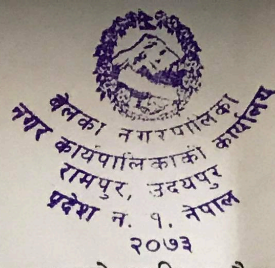 बेलका नगरपालिका
नगर कार्यपालिकाको कार्यालय
रामपुर, उदयपुर
प्रदेश न. १, नेपाल
२०७३